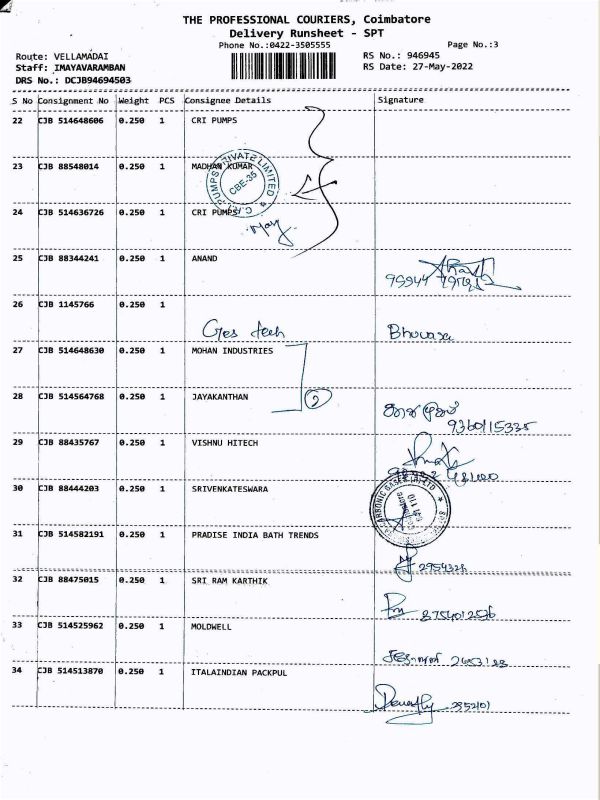 THE PROFESSIONAL COURIERS, Coimbatore
Delivery Runsheet - SPT
Phone No.:0422-3505555 Page No.:3
Route: VELLAMADAI RS No.: 946945
Staff: IMAYAVARAMBAN RS Date: 27-May-2022
DRS No.: DCJB94694503
S No Consignment No Weight PCS Consignee Details Signature
22 CJB 514648606 0.250 1 CRI PUMPS
23 CJB 88548014 0.250 1 MADHAN KUMAR
PUMPS PRIVATE LIMITED
CBE-35
24 CJB 514636726 0.250 1 CRI PUMPS
25 CJB 88344241 0.250 1 ANAND
26 CJB 1145766 0.250 1
27 CJB 514648630 0.250 1 MOHAN INDUSTRIES
28 CJB 514564768 0.250 1 JAYAKANTHAN 2
9360115335
29 CJB 88435767 0.250 1 VISHNU HITECH
30 CJB 88444203 0.250 1 SRIVENKATESWARA
31 CJB 514582191 0.250 1 PRADISE INDIA BATH TRENDS
32 CJB 88475015 0.250 1 SRI RAM KARTHIK
33 CJB 514525962 0.250 1 MOLDWELL
34 CJB 514513870 0.250 1 ITALAINDIAN PACKPUL